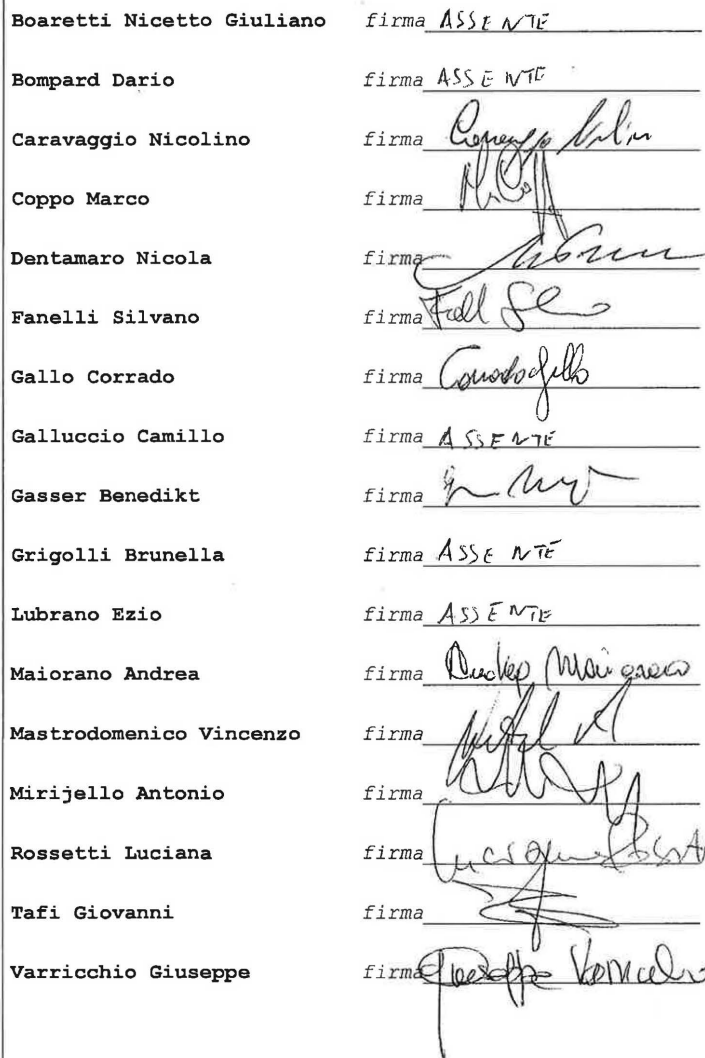 Boaretti Nicetto Giuliano firma ASSENTE
Bompard Dario firma ASSENTE
Caravaggio Nicolino firma
Coppo Marco firma
Dentamaro Nicola firma
Fanelli Silvano firma
Gallo Corrado firma Corrado Gallo
Galluccio Camillo firma ASSENTE
Gasser Benedikt firma
Grigolli Brunella firma ASSENTE
Lubrano Ezio firma ASSENTE
Maiorano Andrea firma Andrea Maiorano
Mastrodomenico Vincenzo firma
Mirijello Antonio firma
Rossetti Luciana firma
Tafi Giovanni firma
Varricchio Giuseppe firma Giuseppe